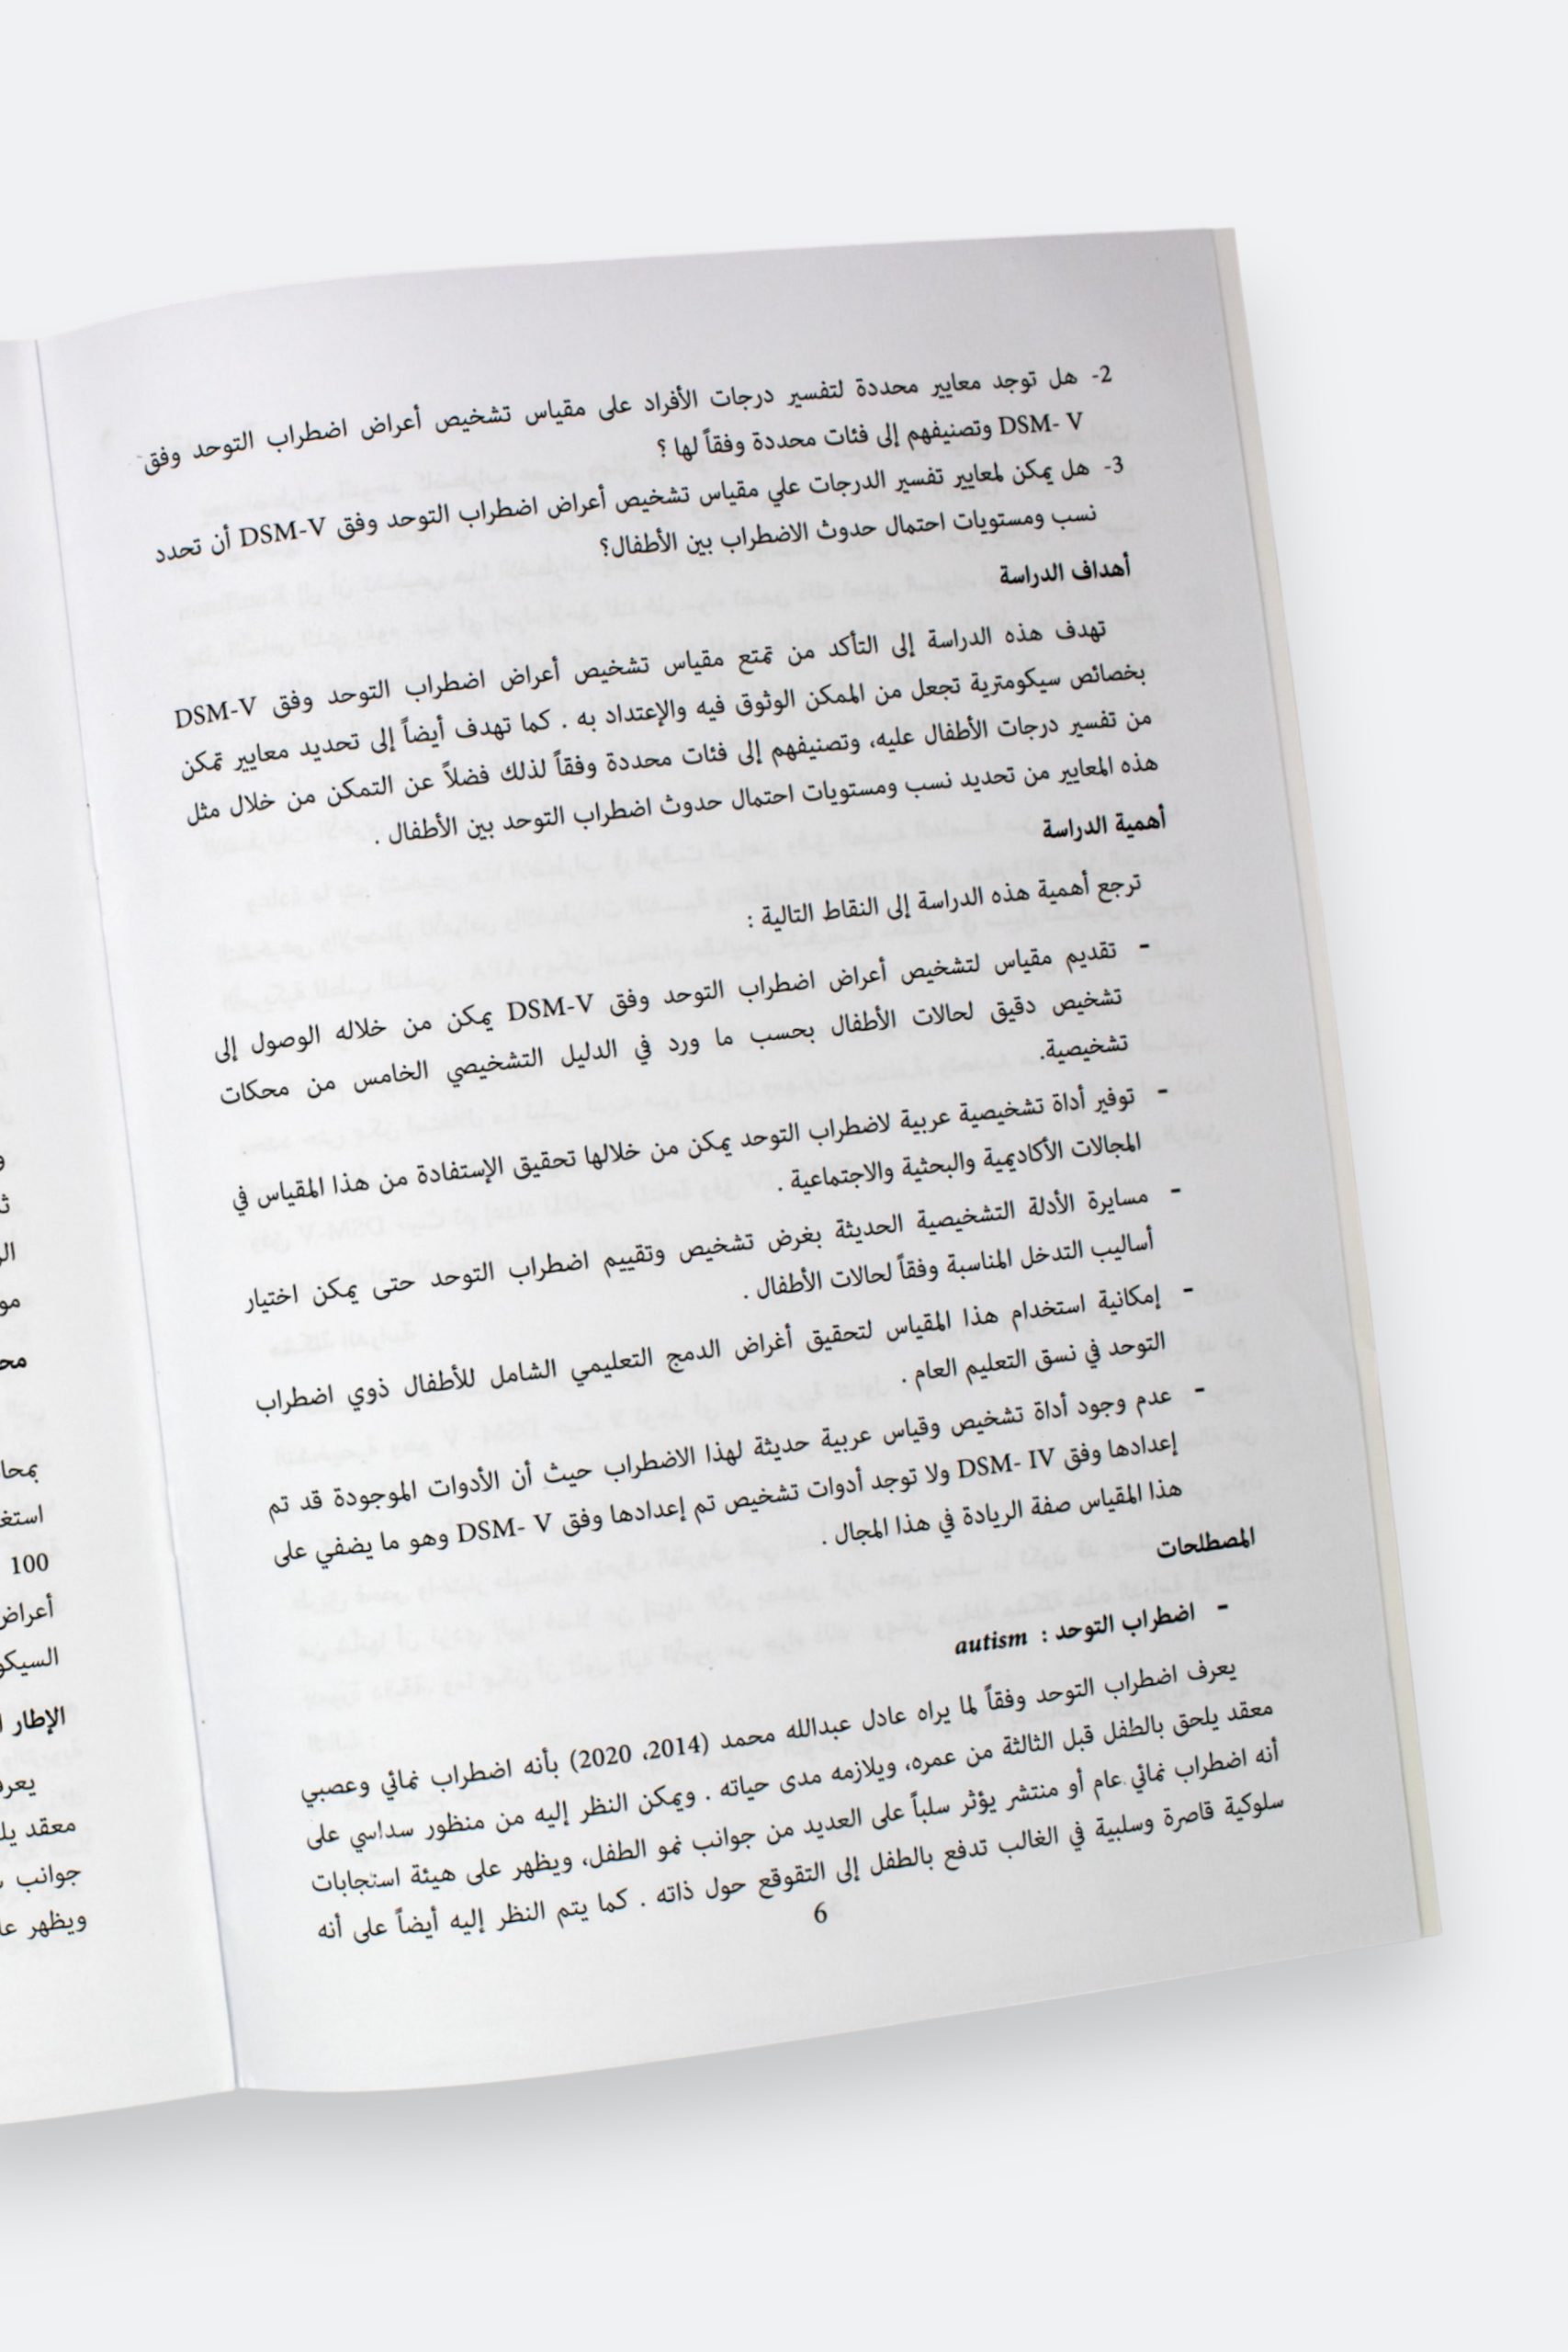 2- هل توجد معايير محددة لتفسير درجات الأفراد على مقياس تشخيص أعراض اضطراب التوحد وفق
DSM- V وتصنيفهم إلى فئات محددة وفقاً لها ؟
3- هل يمكن لمعايير تفسير الدرجات علي مقياس تشخيص أعراض اضطراب التوحد وفق DSM-V أن تحدد
نسب ومستويات احتمال حدوث الاضطراب بين الأطفال؟
أهداف الدراسة
تهدف هذه الدراسة إلى التأكد من تمتع مقياس تشخيص أعراض اضطراب التوحد وفق DSM-V
بخصائص سيكومترية تجعل من الممكن الوثوق فيه والإعتداد به . كما تهدف أيضاً إلى تحديد معايير تمكن
من تفسير درجات الأطفال عليه، وتصنيفهم إلى فئات محددة وفقاً لذلك فضلاً عن التمكن من خلال مثل
هذه المعايير من تحديد نسب ومستويات احتمال حدوث اضطراب التوحد بين الأطفال .
أهمية الدراسة
ترجع أهمية هذه الدراسة إلى النقاط التالية :
- تقديم مقياس لتشخيص أعراض اضطراب التوحد وفق DSM-V يمكن من خلاله الوصول إلى
تشخيص دقيق لحالات الأطفال بحسب ما ورد في الدليل التشخيصي الخامس من محكات
تشخيصية.
- توفير أداة تشخيصية عربية لاضطراب التوحد يمكن من خلالها تحقيق الإستفادة من هذا المقياس في
المجالات الأكاديمية والبحثية والاجتماعية .
- مسايرة الأدلة التشخيصية الحديثة بغرض تشخيص وتقييم اضطراب التوحد حتى يمكن اختيار
أساليب التدخل المناسبة وفقاً لحالات الأطفال .
- إمكانية استخدام هذا المقياس لتحقيق أغراض الدمج التعليمي الشامل للأطفال ذوي اضطراب
التوحد في نسق التعليم العام .
- عدم وجود أداة تشخيص وقياس عربية حديثة لهذا الاضطراب حيث أن الأدوات الموجودة قد تم
إعدادها وفق DSM- IV ولا توجد أدوات تشخيص تم إعدادها وفق DSM- V وهو ما يضفي على
هذا المقياس صفة الريادة في هذا المجال .
المصطلحات
- اضطراب التوحد : autism
يعرف اضطراب التوحد وفقاً لما يراه عادل عبدالله محمد (2014، 2020) بأنه اضطراب نمائي وعصبي
معقد يلحق بالطفل قبل الثالثة من عمره، ويلازمه مدى حياته . ويمكن النظر إليه من منظور سداسي على
أنه اضطراب نمائي عام أو منتشر يؤثر سلباً على العديد من جوانب نمو الطفل، ويظهر على هيئة استجابات
سلوكية قاصرة وسلبية في الغالب تدفع بالطفل إلى التقوقع حول ذاته . كما يتم النظر إليه أيضاً على أنه
6
100
أعراض
الإطار
جوانب